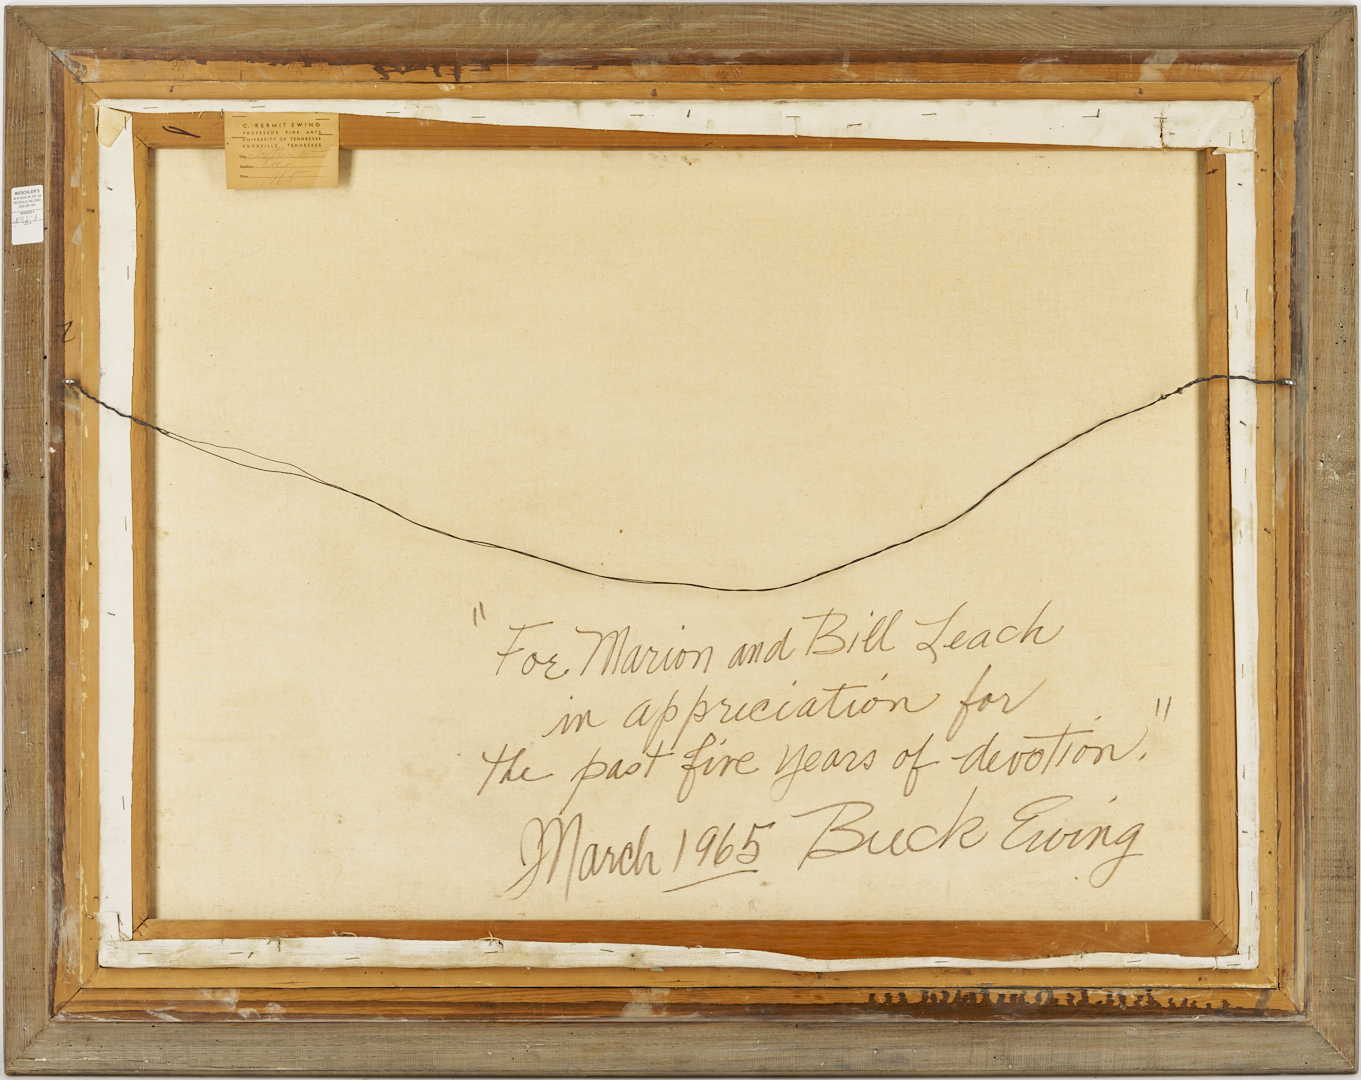 C. KERMIT EWING
PROFESSOR FINE ARTS
UNIVERSITY OF TENNESSEE
KNOXVILLE, TENNESSEE
Title
Medium
Price
1965
WESCHLER'S
"For Marion and Bill Leach
in appreciation for
the past five years of devotion."
March 1965 Buck Ewing